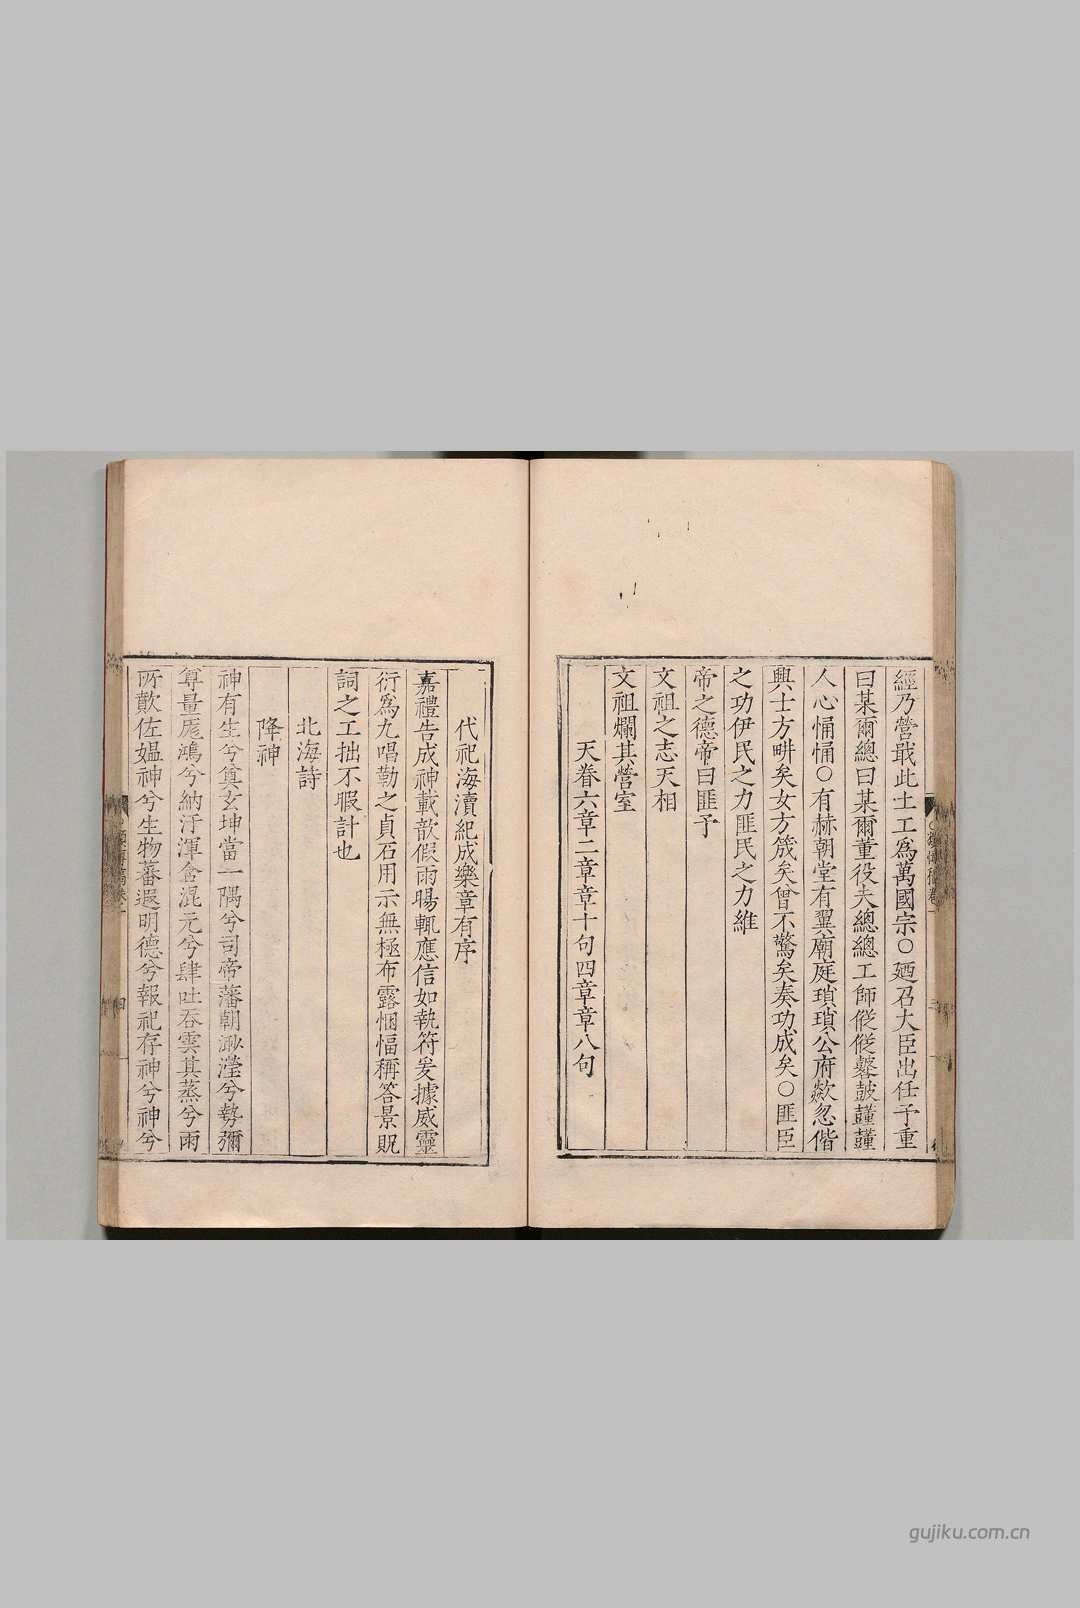 經乃營戢此土工為萬國宗○廼召大臣出任予重
曰某爾總曰某爾董役夫總總工師傱傱鼛鼓薹薹
人心悀悀○有赫朝堂有翼廟庭瑣瑣公府歘忽偕
興士方畊矣女方筬矣曾不驚矣奏功成矣○匪臣
之功伊民之力匪民之力維
帝之德帝曰匪予
文祖之志天相
文祖爛其營室
天眷六章二章章十句四章章八句
代祀海瀆紀成樂章有序
嘉禮告成神載歆假雨暘輒應信如執符爰據威靈
衍爲九唱勒之貞石用示無極布露悃愊稱答景貺
詞之工拙不暇計也
北海詩
降神
神有生兮奠玄坤當一隅兮司帝藩朝渺瀅兮勢彌
尊量厖鴻兮納汙渾翕混元兮肆吐吞雲其蒸兮雨
所歕佐媼神兮生物蕃遐明德兮報祀存神兮神兮
四
gujiku.com.cn